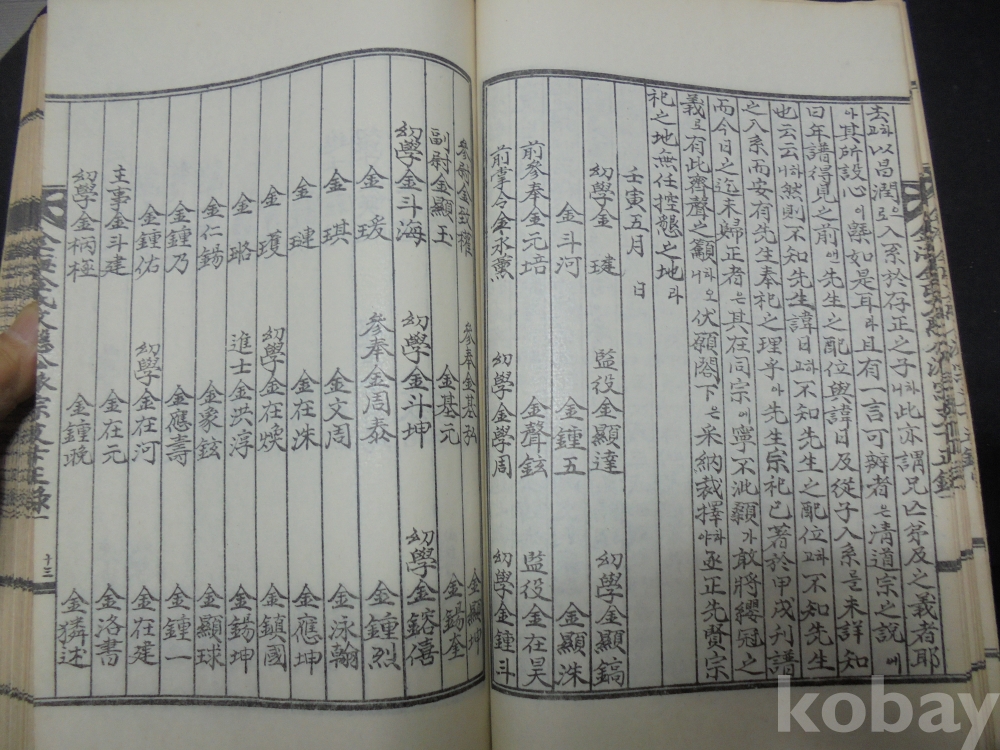 去ᄒᆞ고以昌潤으로入系於存正之子ᄒᆞ니此亦謂兄亡弟及之義者耶
아其所設心이槩如是耳라且有一言可辯者ᄂᆞᆫ清道宗之說에
曰年譜得見之前엔先生之配位與諱日及從子入系를未詳知
也云云ᄒᆞ니然則不知先生諱日ᄒᆞ고不知先生之配位ᄒᆞ고不知先生
之入系而安有先生奉祀之理乎아先生宗祀已著於甲戌刊譜
而今日之迄未歸正者ᄂᆞᆫ其在同宗에寧不泚顙가敢將纓冠之
義로有此齊聲之籲ᄒᆞ오니伏願閤下ᄂᆞᆫ采納裁擇ᄒᆞ야亟正先賢宗
祀之地無任控懇之地라
壬寅五月 日
幼學金 瑅 監役金顯達 幼學金顯鎬
金斗河 金鍾五 金顯洙
前參奉金元培 金聲鉉 監役金在昊
前掌令金永薰 幼學金學周 幼學金鍾斗
參奉金基弘 金顯坤
副尉金顯玉 金基元 金錫奎
幼學金斗海 幼學金斗坤 幼學金鎔僖
金 瑗 參奉金周泰 金鍾烈
金 琪 金文周 金泳翰
金 璉 金在洙 金應坤
金 瓁 幼學金在煥 金鎮國
金 璐 進士金洪淳 金錫坤
金仁錫 金象鉉 金顯球
金鍾乃 金應壽 金鍾一
金鍾佑 幼學金在河 金在珽
主事金斗建 金在元 金洛書
幼學金柄桎 金鍾晚 金獜述
十三
kobay